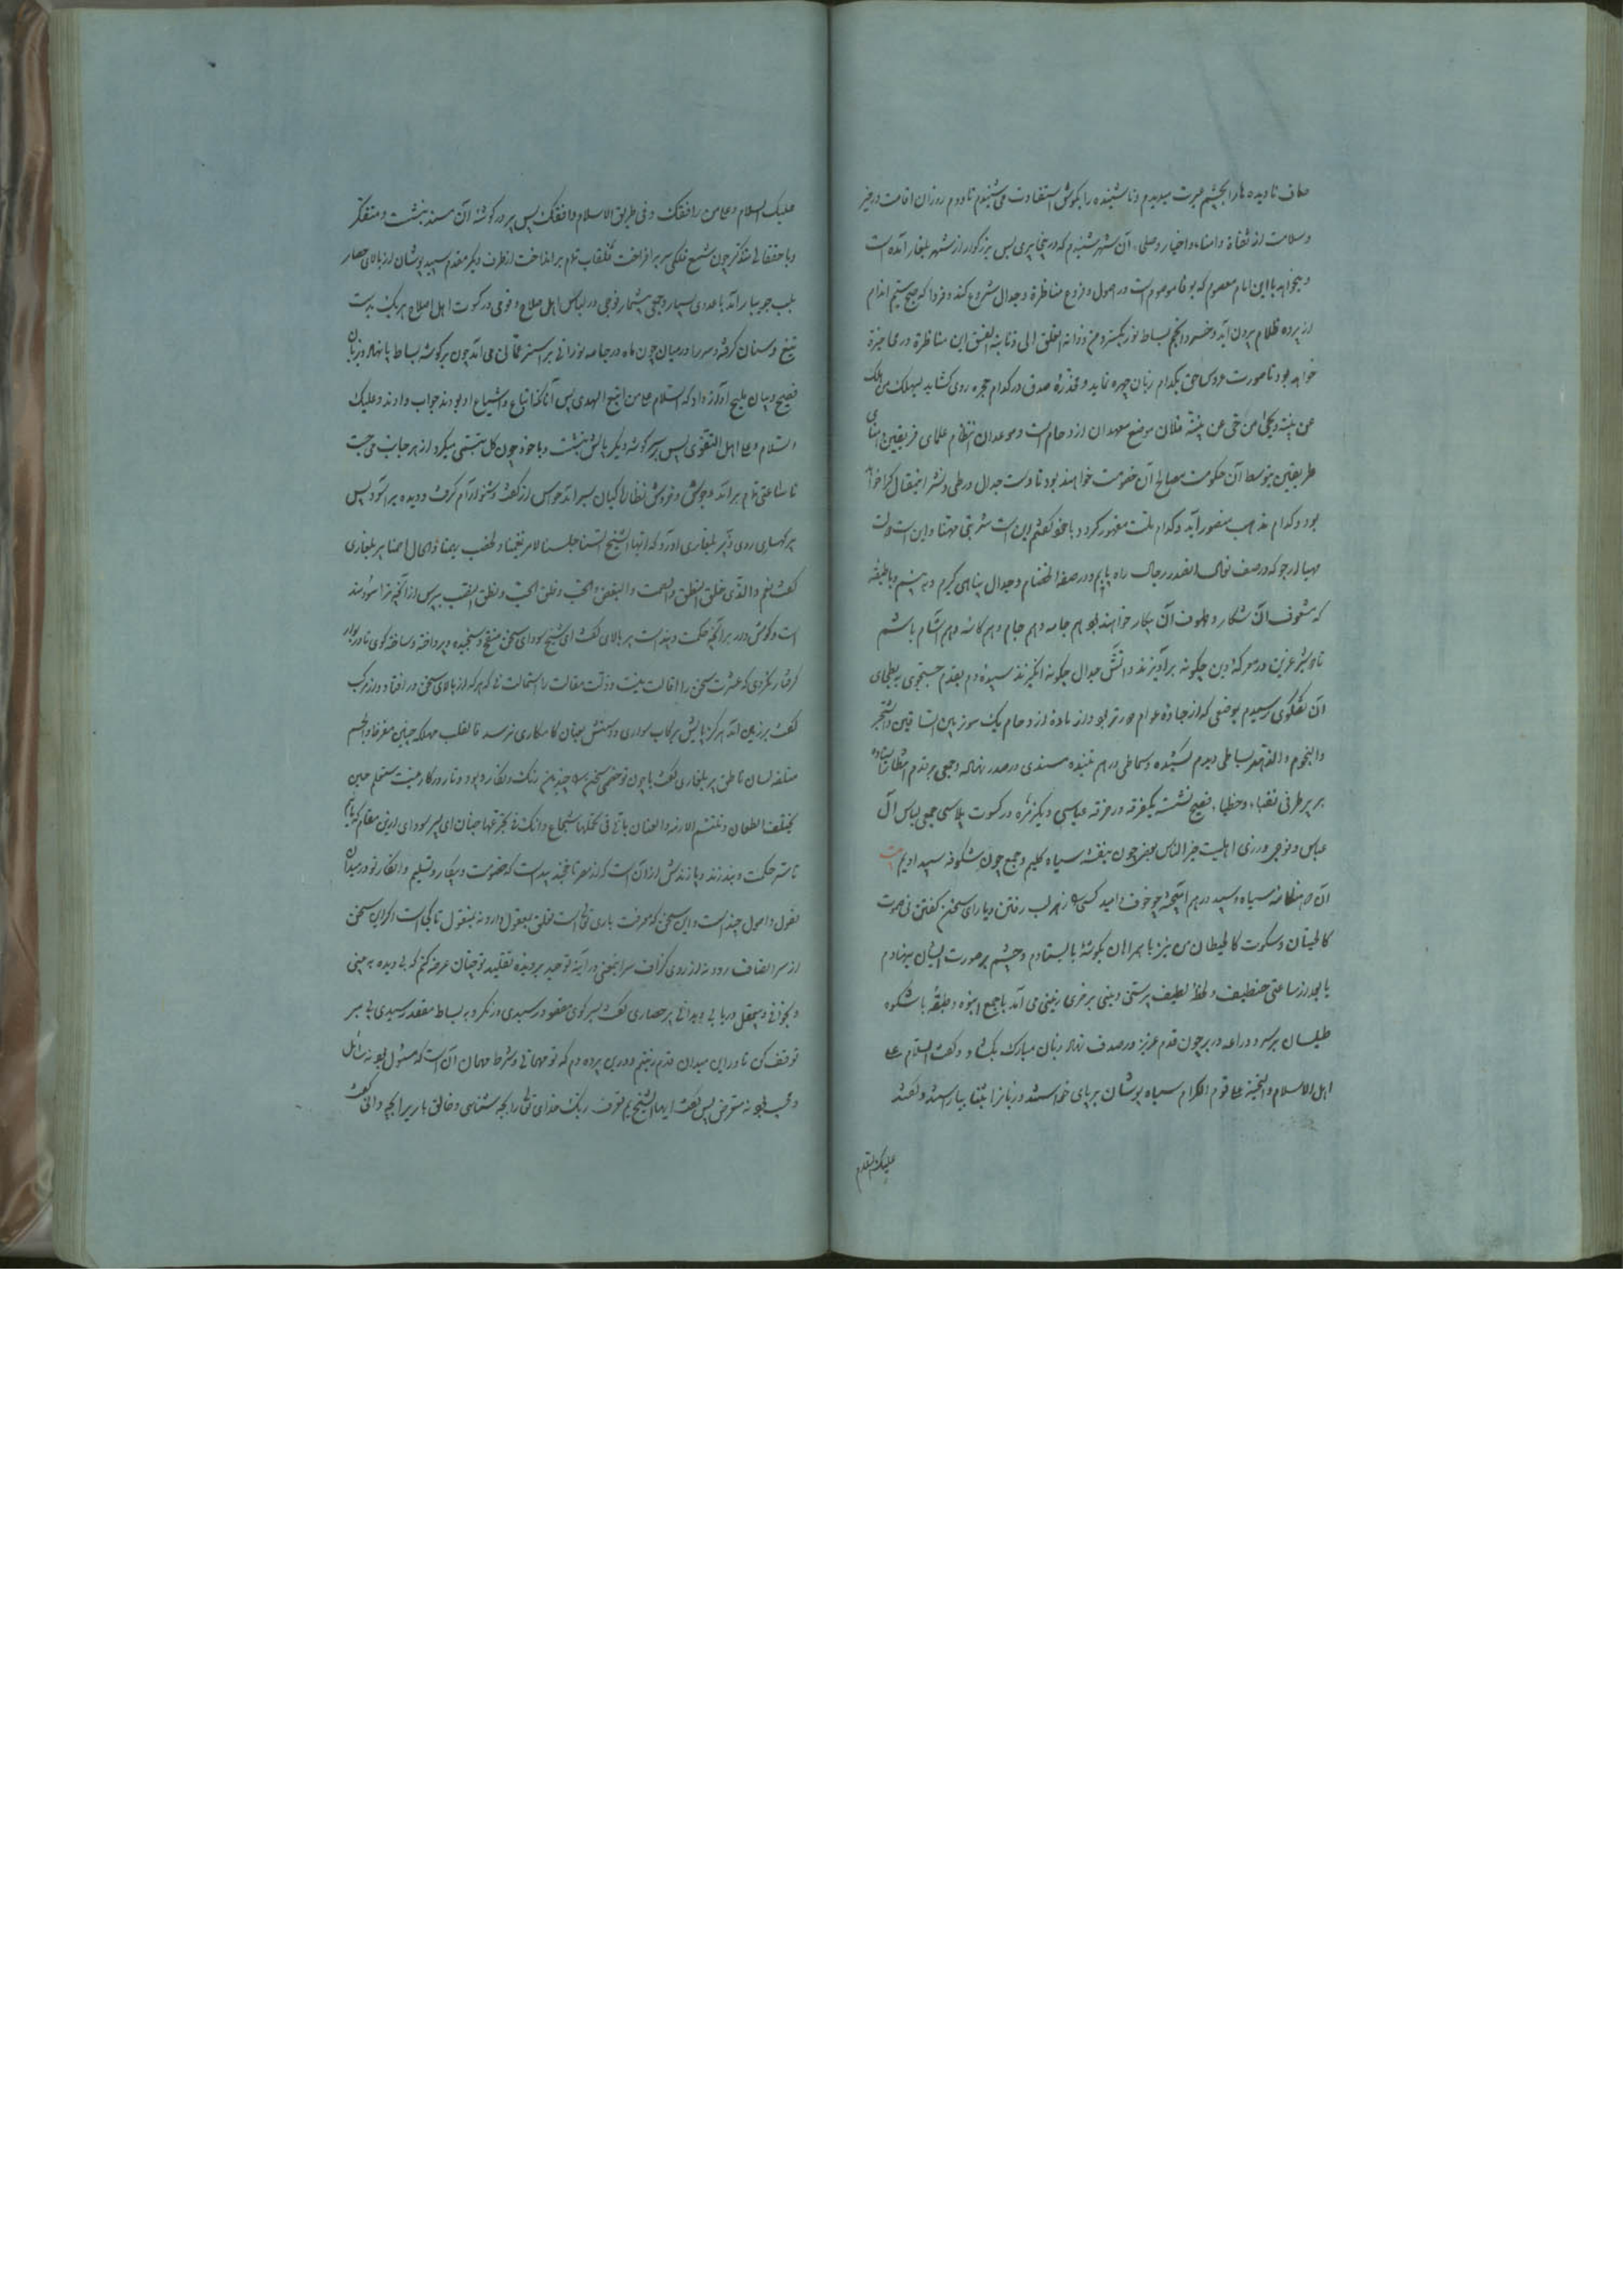 صاف نادیده ها را بچشم عبرت میدیدم و ناشنیده را بگوش استفادت می شنیدم تا دوم روز از اقامت در خیر
و سلامت از ثقاة و امناء و اخیار و صلحاء آن شهر شنیدم که درینجا پیری بس بزرگوار از شهر بلغار آمده است
و میخواهد با این امام معصوم که بوفا موصوم است در اصول و فروع مناظره و جدال شروع کند و فردا که صبح ستیم اندام
از پرده ظلام برون آید و خسرو انجم بساط نور بگسترد من ذوابة الفلق الی ذنابة الغسق این مناظره در محاضره
خواهد بود تا صورت عروس حق بکدام زبان چهره نماید و مخدره صدق در کدام حجره روی گشاید لیهلک من هلک
عن بینة و یحیی من حی عن بینة فلان موضع معهد آن ازدحام است و موعد آن انتظام علمای فریقین و امنای
طریقین بتوسط آن حکومت و مصالح آن خصومت خواهند بود تا دست جدال در طی و نشر این مقال کرا خواهد
بود و کدام مذهب منصور آید و کدام ملت مقهور گردد با خود گفتم این است شربتی مهنا و این است دولت
مهیا ارجو که در صف نعال القدر رجال راه یابم و در صفه الخصام و جدال پناهی گیرم و ببینم و با طیفه
که مشعوف آن شکار و ملهوف آن پیکار خواهند بود هم جامه و هم جام و هم کاسه و هم آشام باشم
تا دو شیر عرین در معرکه دین چگونه برآویزند و آتش جدال چگونه انگیزند سپیده دم بقدم جستجوی ببطحای
آن گفتگوی رسیدم بموضعی که از جاده عوام دورتر بود و از ماده ازدحام یک سوتر بین الساقین و الشجر
والنجوم و القمر بساطی دیدم کشیده و سماطی در هم تنیده مسندی در صدر نهاده و جمعی بر قدم انتظار ایستاده
بر هر طرفی نقباء و خطباء فصیح نشسته یکفرقه در خرقه عباسی و دیگر زمره در کسوت پلاسی جمعی لباس آل
عباس و فوجی در زی اهلبیت خیر الناس بعضی چون بنفشه سیاه گلیم و جمع چون شکوفه سپید ادیم
آن هنگامه سیاه و سپید در هم آمیخته چو خوف و امید کسی را نه زهره لب رفتن و یارای سخن گفتن فی صوت
کالحیتان و سکوت کالحیطان من نیز با همراهان بگوشه بایستادم و چشم بر صورت ایشان بنهادم
یا بعد از ساعتی خفیف و لحظه لطیف پرستی و بینی بر خری زینی می آمد با جمع انبوه و طبقه با شکوه
طیلسان بر سر و دراعه در بر چون قدم عزیز در صدف نهاد زبان مبارک بگشاد و گفت السلام علی
اهل الاسلام و التحیة علی قوم الکرام سیاه پوشان بر پای خواستند و زبانرا بثنا بیاراستند و گفتند
علیک السلام
علیک السلام و علی من رافقک و فی طریق الاسلام وافقک پس پیر در گوشه آن مسند بنشست و متفکر
و با حفقانی متذکر چون شمع فلکی سر بر افراخت و نقاب تمام بر انداخت از طرف دیگر مقدم سپید پوشان از بالای حصار
بلب جویبار آمد با عددی بسیار و جمعی بیشمار فوجی در لباس اهل صلاح و قومی در کسوت اهل سلاح هر یک بدست
تیغ و سنان گرفته و سر را در میان چون ماه در جامه نورانی بر استر عمانی می آمد چون بر گوشه بساط پا نهاد و بزبان
فصیح و بیان ملیح آواز داد که السلام علی من اتبع الهدی پس آنان که اتباع و اشیاع او بودند جواب دادند و علیک
السلام و علی اهل التقوی پس بر گوشه دیگر بالش بنشست و با خود چون گل تبسمی میکرد از هر جانب می جست
تا ساعتی تمام برآمد و جوش و خروش نظارگیان بسر آمد حواس از گفت و شنو آرام گرفت و دیده بر آسود پس
پیر کهساری روی بپیر بلغاری آورد که ایها الشیخ السنا جلسنا لامر
گفت نعم والذی خلق النطق والصمت والبغض و الحب و فلق الحب و نطق القلب بپرس از آنچه ترا سودمند
است و گوش دار بر آنچه حکمت و پند است پیر بالای گفت ای شیخ سودای سخن منقح و سنجیده و پرداخته و ساخته گوی تا در بار
گرفتار نگردی که عثرت سخن را اقالت نیست و زلت مقالت را استمالت نه که هر که از بالای سخن در افتاد و از مرکب
گفت بر زمین آمد هرگز پایش برکاب سواری و دستش بعنان کامکاری نرسد
پیر بلغاری گفت با چون تو خصمی سخن را چندین رنگ و نگار و پود و تار در کار نیست ستعلم حین
یختلف الطعان و تلتثم الاسنة و العنان بانی فی شجاع و انک فی جبان ای پیر سودای درین مقام که با
تا ستر حکمت و پند زند و پازندش از آن است که از سر تا خجند پیداست که خصومت و پیکار و تسلیم و انکار تو در میدان
نقول و اصول چند است و این سخن که معرفت باری تعالی است تعلق بمعقول دارد نه بمنقول تا کجاست اگر این سخن
از سر انصاف رود نه از روی گزاف سر این معنی در آینه توحید بر دیده تقلید تو چنان عرضه کنم که بی دیده ببینی
و بخوانی و بیعقل دریابی و بدانی پیر حصاری گفت بسر کوی مقصود رسیدی در نگر و به بساط مقعد رسیدی پی سپر
توقف کن تا در این میدان قدم زنیم و درین پرده دم که تو مهمانی و شرط مهمان آن است که مسئول بود نه سائل
و مجیب بود نه متعرض پس گفت ایها الشیخ بم تعرف ربک خدای تعالی را بچه شناسی و خالق باری را بچه دانی گفت